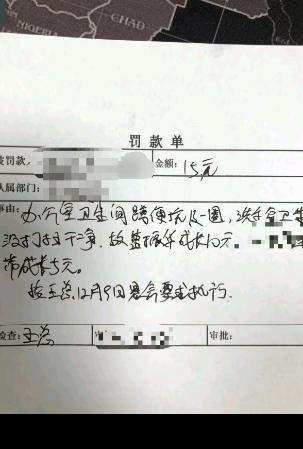 NIGERIA
CHAD
罚款单
被罚款
金额：15元
人属部门：
事由：办公室卫生间蹲便坑及一圈，洗手室卫生
没打扫干净，故 成长10元。
带成长5元。
按王总12月9日晨会要求执行。
检查：王总
审
审批：